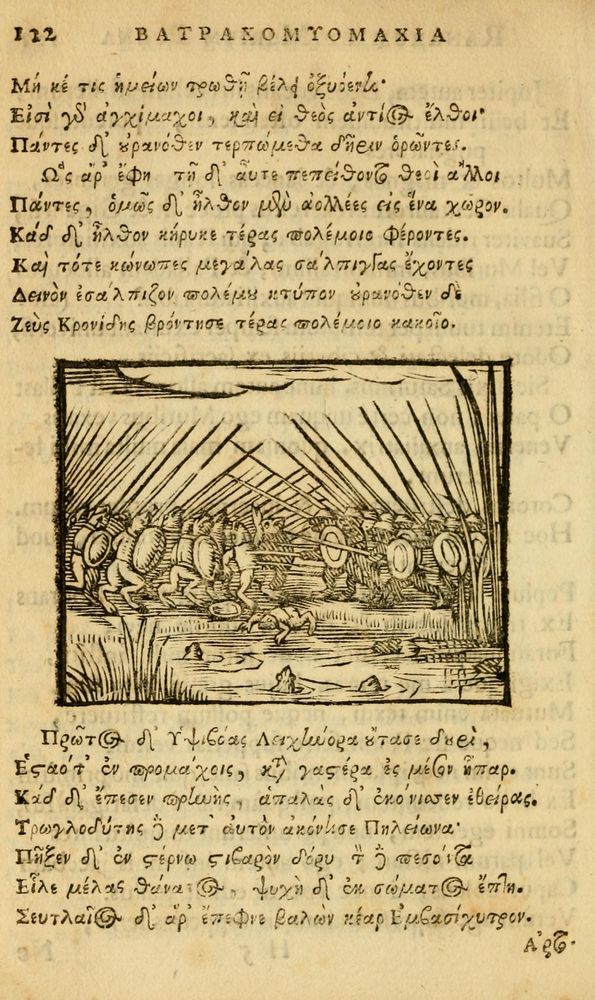 122 ΒΑΤΡΑΧΟΜΥΟΜΑΧΙΑ
Μή κέ τις ἡμείων τρωθῇ βέλει ὀξυόεντι·
Εἰσὶ γὸ ἀγχίμαχοι, καὶ εἰ θεὸς ἀντίος ἔλθοι·
Πάντες δ' οὐρανόθεν τερπώμεθα δῆριν ὁρῶντες.
Ὣς ἄρ' ἔφη τῇ δ' αὖτε πεπείθοντο θεοὶ ἄλλοι
Πάντες, ὁμῶς δ' ἦλθον μὲν ἀολλέες εἰς ἕνα χῶρον.
Κὰδ δ' ἦλθον κήρυκε τέρας πολέμοιο φέροντες.
Καὶ τότε κώνωπες μεγάλας σάλπιγγας ἔχοντες
Δεινὸν ἐσάλπιζον πολέμου κτύπον οὐρανόθεν δὲ
Ζεὺς Κρονίδης βρόντησε τέρας πολέμοιο κακοῖο.
Πρῶτος δ' Ὑψιβόας Λειχήνορα οὔτασε δουρὶ,
Ἑσταότ' ἐν προμάχοις, κατὰ γαστέρα ἐς μέσον ἧπαρ.
Κὰδ δ' ἔπεσεν πρηνὴς, ἁπαλὰς δ' ἐκόνισεν ἐθείρας.
Τρωγλοδύτης δὲ μετ' αὐτὸν ἀκόντισε Πηλείωνα·
Πῆξεν δ' ἐν στέρνῳ στιβαρὸν δόρυ τὸν δὲ πεσόντα
Εἷλε μέλας θάνατος, ψυχὴ δ' ἐκ σώματος ἔπτη.
Σευτλαῖος δ' ἄρ' ἔπεφνε βαλὼν κέαρ Ἐμβασίχυτρον.
Ἀρτο·